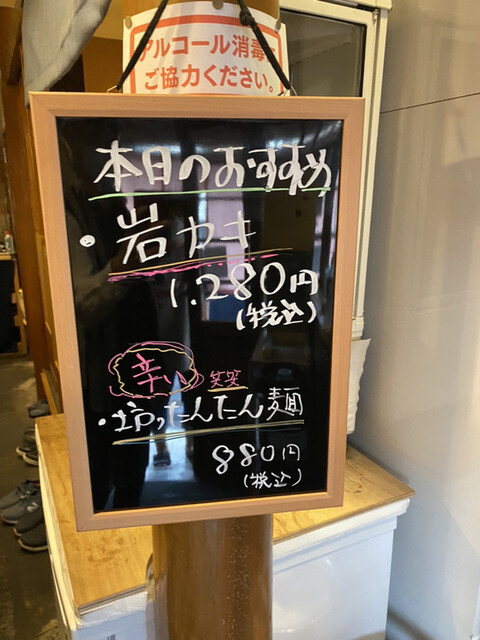 アルコール消毒に
ご協力ください。
本日のおすすめ
・岩カキ
1.280円
(税込)
辛い 笑笑
・坊ったんたん麺
880円
(税込)